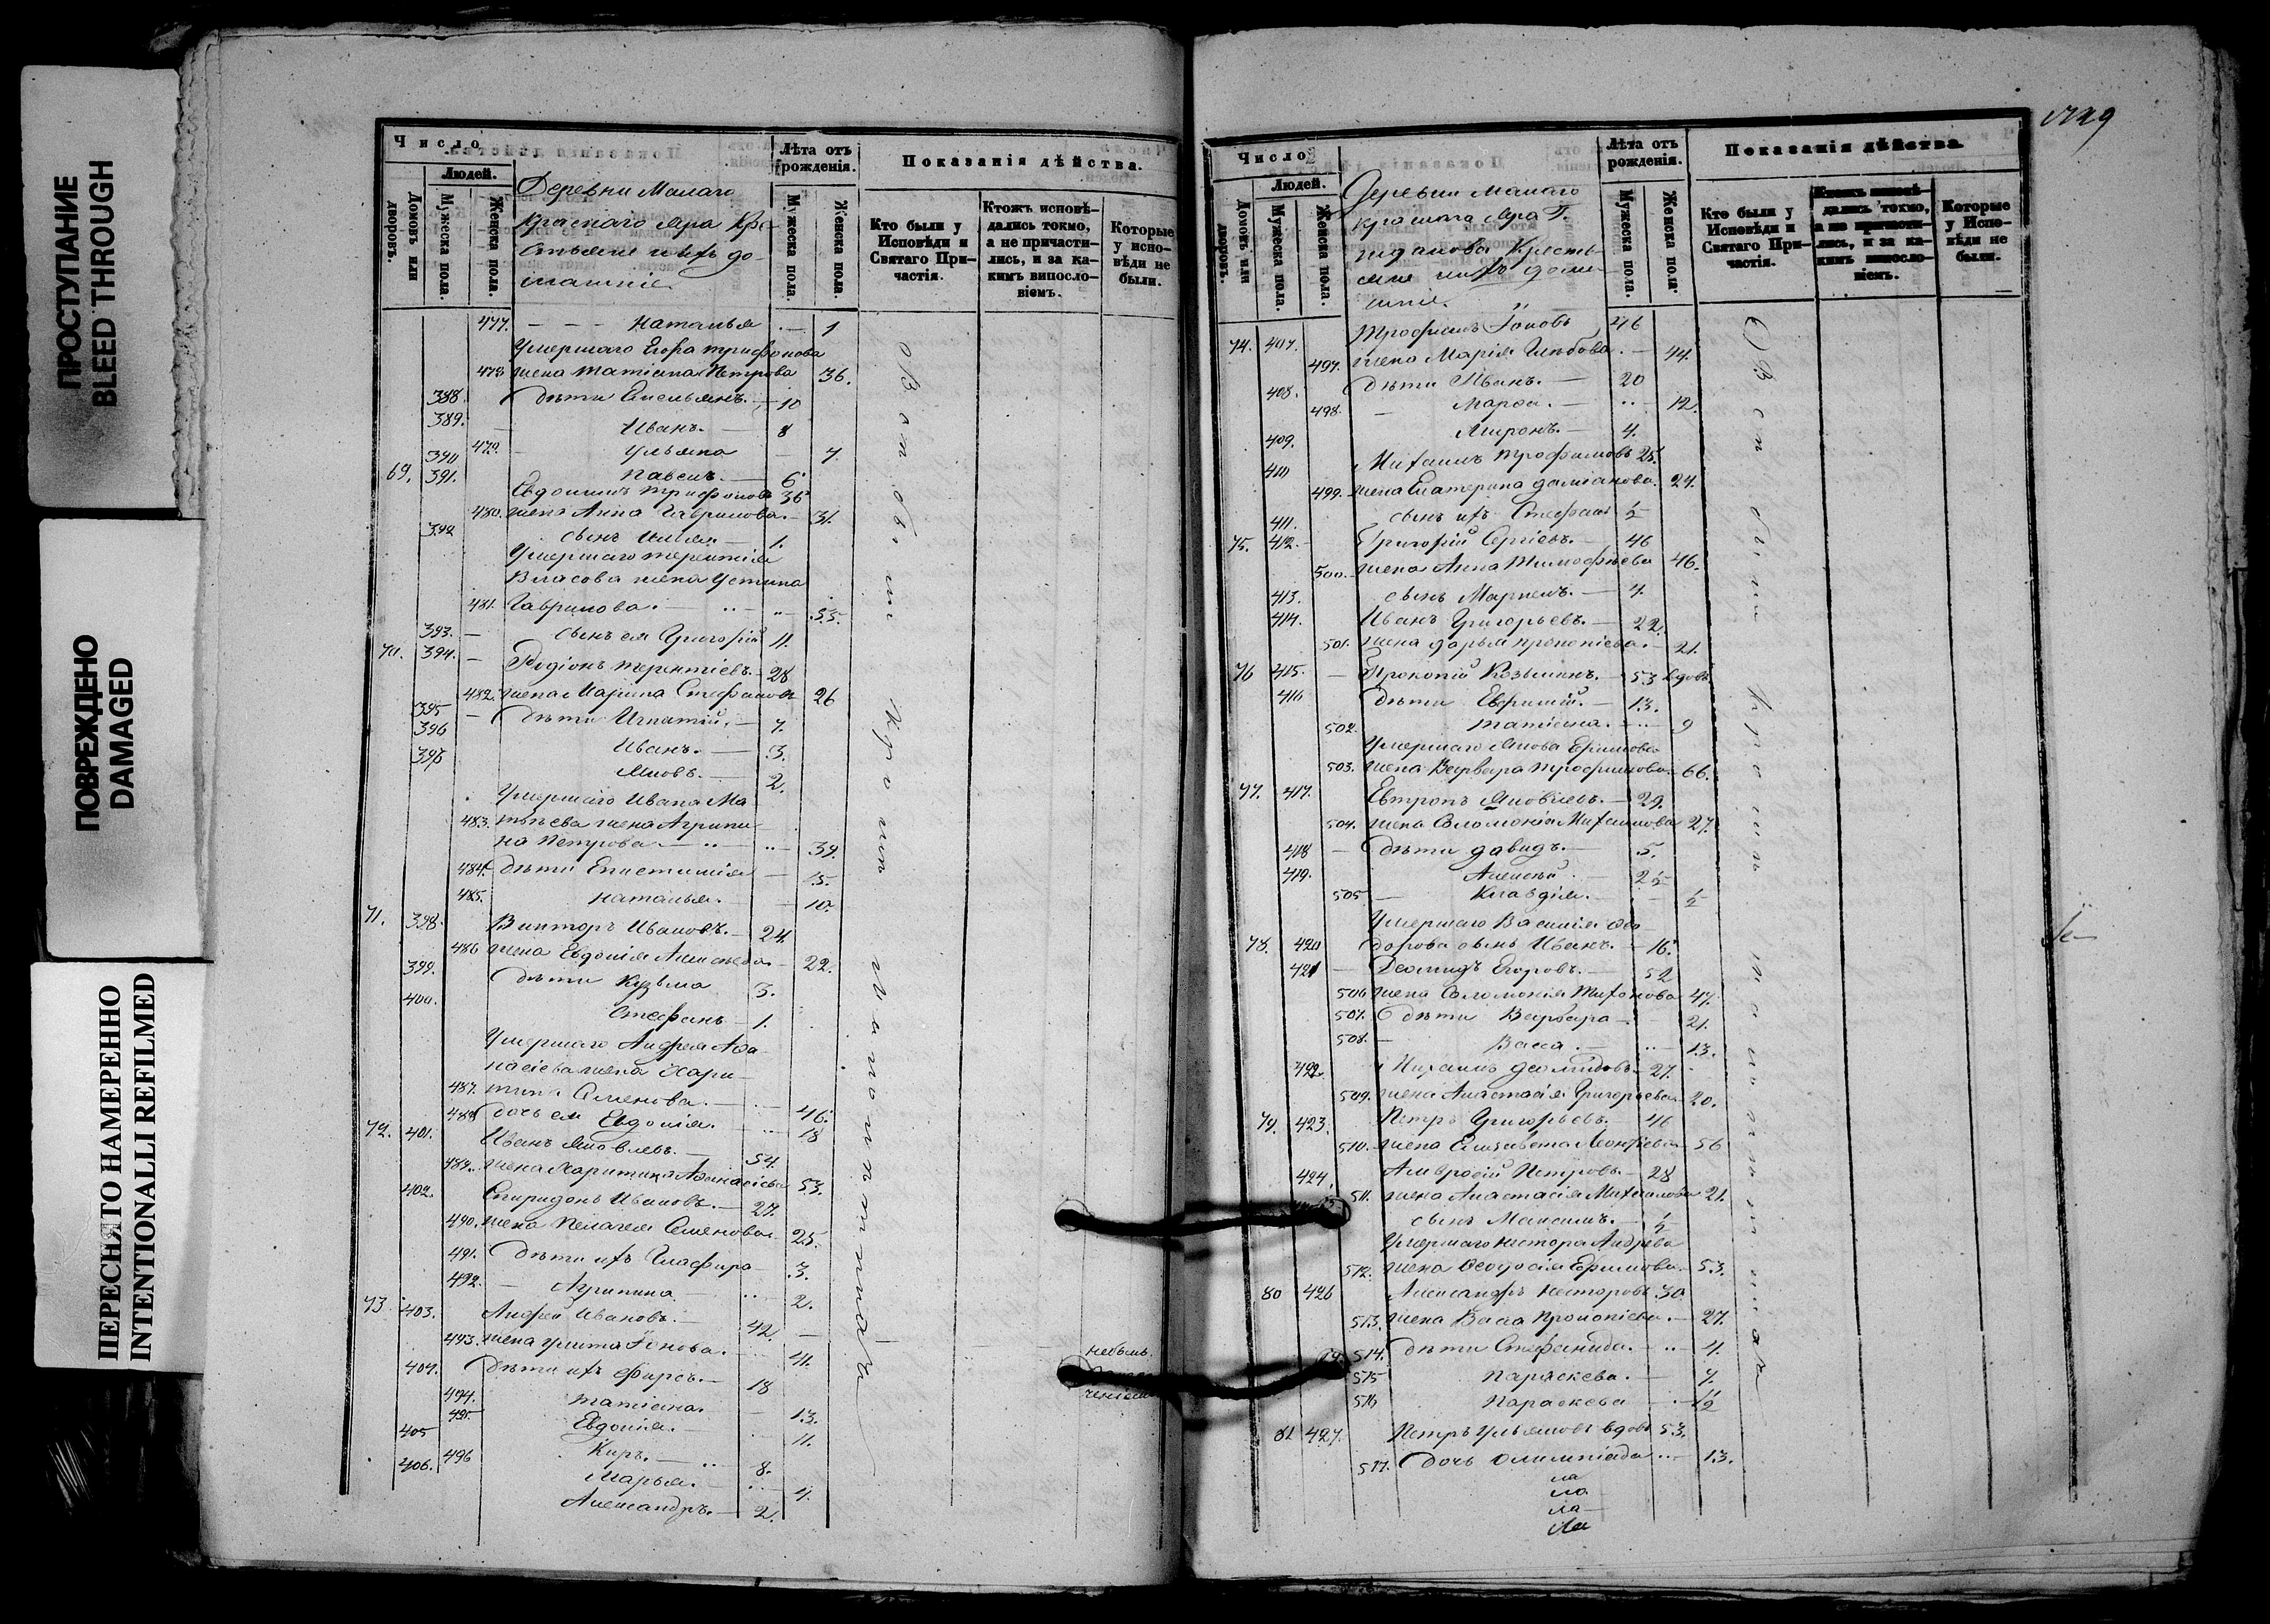 ПРОСТУПАНИЕ
BLEED THROUGH
ПОВРЕЖДЕНО
DAMAGED
ПЕРЕСНЯТО НАМЕРЕННО
INTENTIONALLI REFILMED
Число
Людей.
Домовъ или дворовъ.
Мужеска пола.
Женска пола.
Деревни Малаго
Краснаго Яра Кре-
стьяне и ихъ до-
машніе.
Лѣта отъ рожденія.
Мужеска пола.
Женска пола.
Показанія дѣйства.
Кто были у Исповѣди и Святаго При-частія.
Ктожъ исповѣ-дались токмо, а не причасти-лись, и за ка-кимъ винослo-віемъ.
Которые у испо-вѣди не были.
477. Наталья 1
Умершаго Егора Трифонова
478 жена Татіана Петрова 36.
388. дѣти Емельянъ. 10
389. Иванъ. 8
479. Ульяна 7.
390 Павелъ. 6
69. 391. Евдокимъ Трифоновъ 36
480. жена Анна Гаврилова. 31.
392 сынъ 1.
Умершаго Терентія
Власова жена Устина
481. Гаврилова. 55.
393. сынъ ея Григорій 11.
70. 394. Родіонъ Терентіевъ. 28
482. жена Марина Стефанова 26
395 дѣти Игнатій. 7.
396 Иванъ. 3.
397 Яковъ. 2.
Умершаго Ивана Ма
483. твѣева жена Агрипи-
на Петрова 39.
484. дѣти Епистимія 15.
485. Наталья. 10.
71. 398. Викторъ Ивановъ. 24.
486 жена Евдокія Алексѣева 22.
399. дѣти Кузьма 3.
400. Стефанъ 1.
Умершаго Андрея Афа-
насіева жена Хари-
487. тина Семенова. 46.
488 дочь ея Евдокія. 18
72. 401. Иванъ Яковлевъ. 54.
489. жена Харитина Афанасіева 53.
402. Спиридонъ Ивановъ. 27.
490. жена Пелагея Семенова 25.
491. дѣти ихъ Глафира 3.
492. Агрипина 2.
73. 403. Андрей Ивановъ. 42.
493. жена Улита Іонова. 41.
404. дѣти ихъ Фирсъ. 18
494. Татіана. 13.
495 Евдокія. 11.
405 Киръ. 8.
496 Марья. 4.
406. Александръ. 2.
небылъ
Всѣ были кромѣ малолѣтнихъ
1229
Число
Людей.
Домовъ или дворовъ.
Мужеска пола.
Женска пола.
Деревни Малаго
Краснаго Яра Г.
Жданова Кресть-
яне и ихъ дома-
шніе.
Лѣта отъ рожденія.
Мужеска пола.
Женска пола.
Показанія дѣйства.
Кто были у Исповѣди и Святаго При-частія.
Ктожъ исповѣ-дались токмо, а не причасти-лись, и за ка-кимъ винослo-віемъ.
Которые у Испо-вѣди не были.
74. 407. Трофимъ Іоновъ 46
497. жена Марія Глѣбова. 44.
408. дѣти Иванъ. 20
498. Марѳа. 12.
409. Миронъ. 4.
410 Михаилъ Трофимовъ 25.
499. жена Екатерина Даміанова. 24.
411. сынъ ихъ Стефанъ ½
75. 412. Григорій Сергіевъ. 46
500. жена Анна Тимофѣева 46.
413. сынъ Маркелъ. 4.
414. Иванъ Григорьевъ. 22.
501. жена Дарья Прокопіева. 21.
76 415. Прокопій Козьминъ. 53 вдовъ
416 дѣти Евфимій. 13.
502. Татіана. 9
Умершаго Якова Ефимова
503. жена Варвара Трофимова 66.
77. 417. Евтропъ Яковлевъ. 29.
504. жена Соломонія Михаилова 27.
418 дѣти Давидъ. 5.
419. Алексѣй. 2½
505 Клавдія. ½
Умершаго Василія Ѳео
78. 420 дорова сынъ Иванъ. 16.
421 Деомидъ Егоровъ. 52
506 жена Соломонія Тихонова 47.
507. дѣти Варвара 21.
508. Васса. 13.
422. Михаилъ Деомидовъ 27.
509. жена Анастасія Григорьева 20.
79. 423. Петръ Григорьевъ. 46
510. жена Елизавета Леонтіева 56
424. Амвросій Петровъ. 28
511. жена Анастасія Михаилова 21.
сынъ Максимъ. ½
Умершаго Нестора Андрѣева
512. жена Ѳеодосія Ефимова. 53.
80 426 Александръ Несторовъ 30
513. жена Васса Прокопіева. 27.
514. дѣти Стефанида. 4.
515 Параскева. 7.
516 Параскева 1½
81 427. Петръ Ульяновъ вдовъ 53.
517. дочь Олимпіада 13.
Всѣ были кромѣ малолѣтнихъ